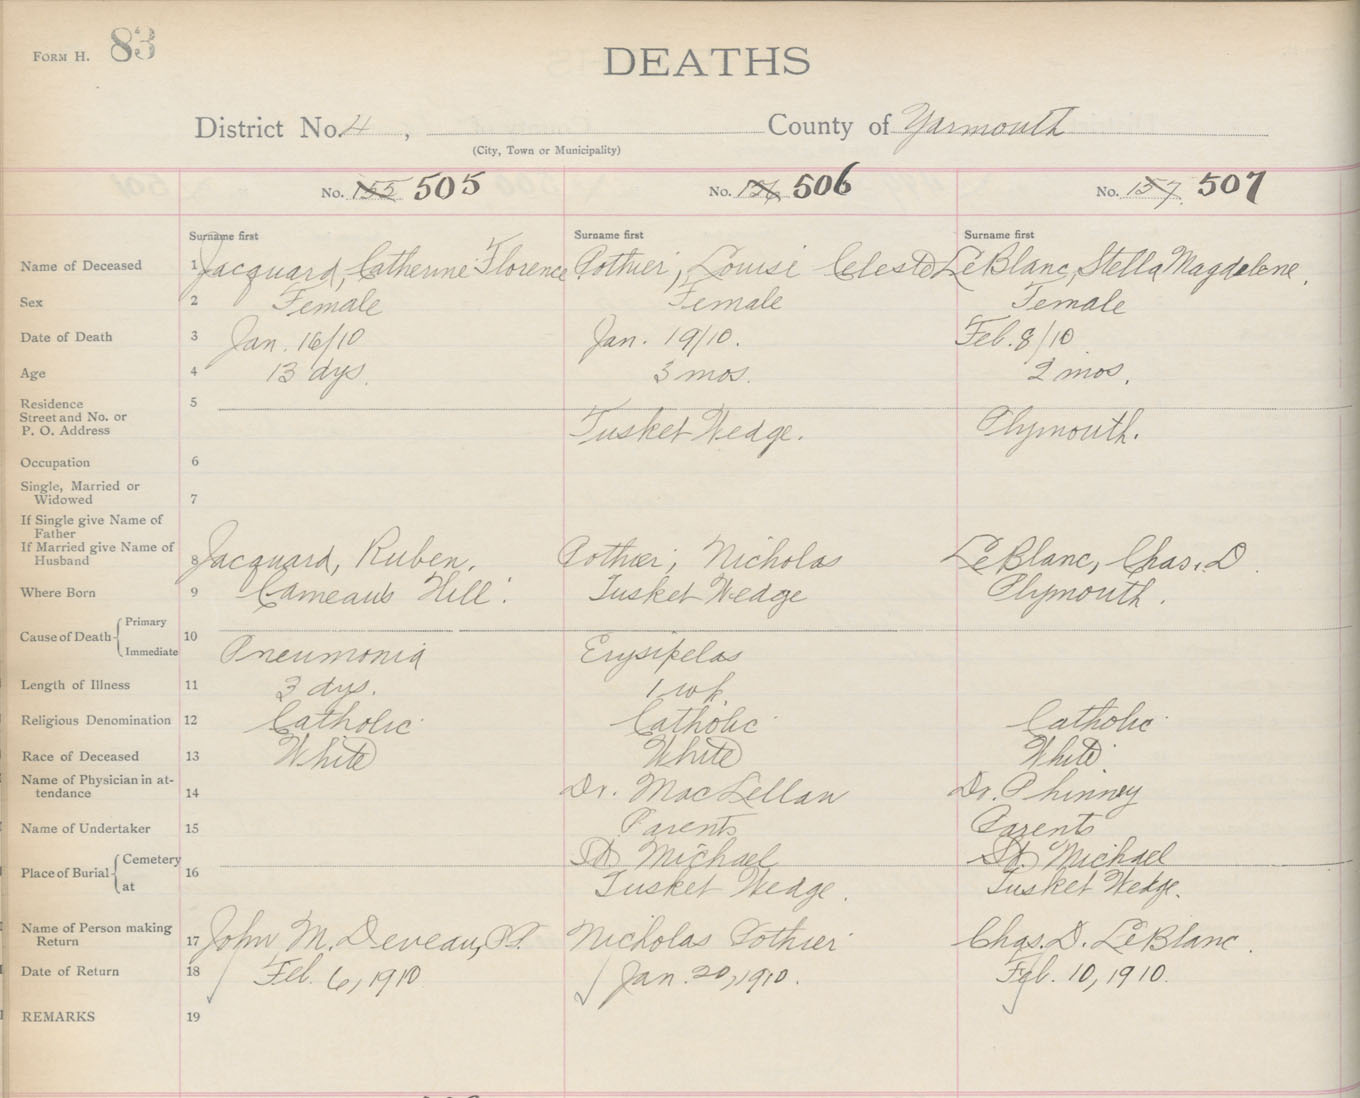 FORM H. 83
DEATHS
District No. 4, County of Yarmouth
(City, Town or Municipality)
No. 155 505 No. 156 506 No. 157 507
Surname first Surname first Surname first
Name of Deceased 1 Jacquard, Catherine Florence Pothier, Louise Celeste LeBlanc, Stella Magdalene.
Sex 2 Female Female Female
Date of Death 3 Jan. 16/10 Jan. 19/10. Feb. 8/10
Age 4 13 dys. 3 mos. 2 mos.
Residence 5
Street and No. or
P. O. Address Tusket Wedge. Plymouth.
Occupation 6
Single, Married or
Widowed 7
If Single give Name of
Father
If Married give Name of
Husband 8 Jacquard, Ruben. Pothier, Nicholas LeBlanc, Chas. D
Where Born 9 Comeaus Hill. Tusket Wedge Plymouth.
Cause of Death Primary 10
Immediate Pneumonia Erysipelas
Length of Illness 11 3 dys. 1 wk
Religious Denomination 12 Catholic Catholic Catholic
Race of Deceased 13 White White White
Name of Physician in at-
tendance 14 Dr. MacLellan Dr. Phinney
Name of Undertaker 15 Parents Parents
Place of Burial Cemetery 16 St. Michael St. Michael
at Tusket Wedge. Tusket Wedge.
Name of Person making
Return 17 John M. Deveau, P.P. Nicholas Pothier Chas. D. LeBlanc.
Date of Return 18 Feb. 6, 1910 Jan. 20, 1910. Feb. 10, 1910.
REMARKS 19